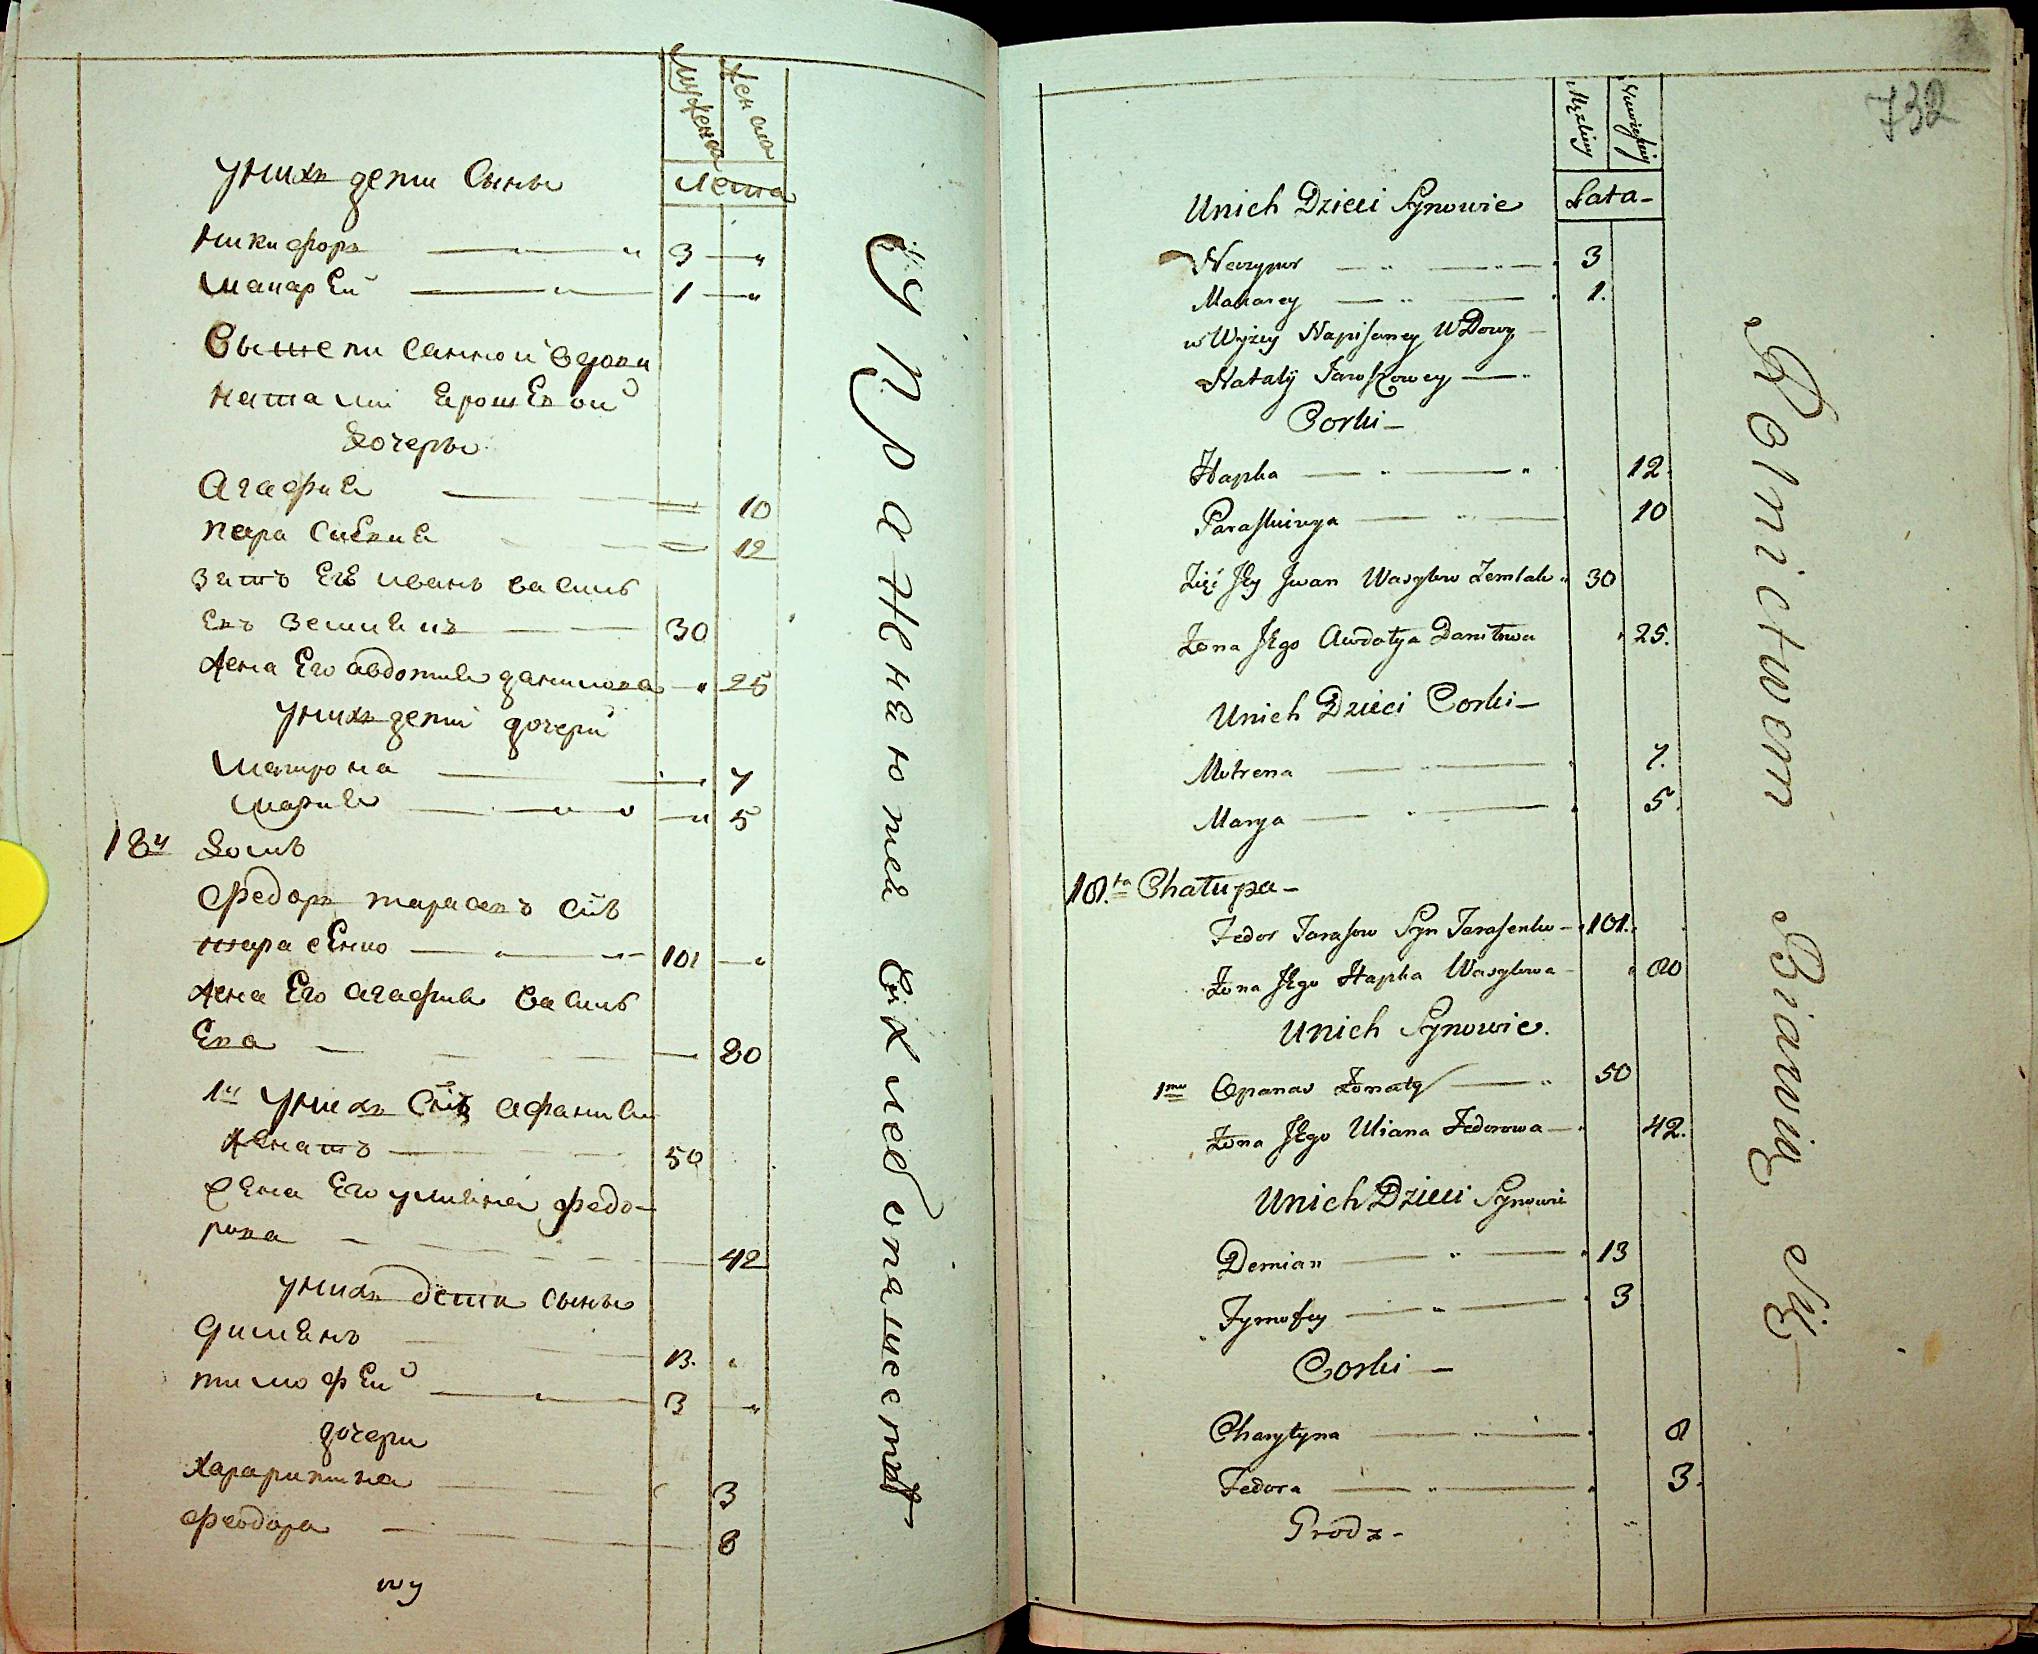 мужска
женска
лета
у них дети Сыны
никифоръ 3 "
макарей 1 "
вышеписанной вдови
наталии ярошевой
дочеры
Агафия 10
параскевия 12
зять Ея иванъ василь
евъ землякъ 30
жена Его авдотия данилова " 25
у них дети дочери
матрона 7
мария " 5
18й домъ
федоръ тарасовъ снъ
тарасенко 101 "
жена Его агафия василь
ева 80
1й у них снъ афанасий
женатъ 50
жена Его улияна федо-
рова 42
у них дети сыны
димянъ 13. "
тимофей 3 "
дочери
харитина 3
феодора 8
упражняютей в хлебопашестве
732
Męzkiey
Lata-
Unich Dzieci Synowie
Neczypor 3
Makarey 1.
w Wyżey Napisaney Wdowy
Nataly Jaroszowey
Corki-
Hapka 12.
Paraskiewya 10
Zięć Jey Jwan Wasylow Zemlak 30
Żona JEgo Awdotya Daniłowa 25.
Unich Dzieci Corki-
Motrena 7.
Marya 5.
18.ta Chałupa-
Fedor Tarasow Syn Tarasenko 101.
Żona JEgo Hapka Wasylowa 80
Unich Synowie.
1my Opanas Żonaty 50
Żona JEgo Uliana Fedorowa 42.
Unich Dzieci Synowie
Demian 13
Tymofey 3
Corki-
Charytyna 8
Fedora 3.
Rolnictwem Bawią Się-